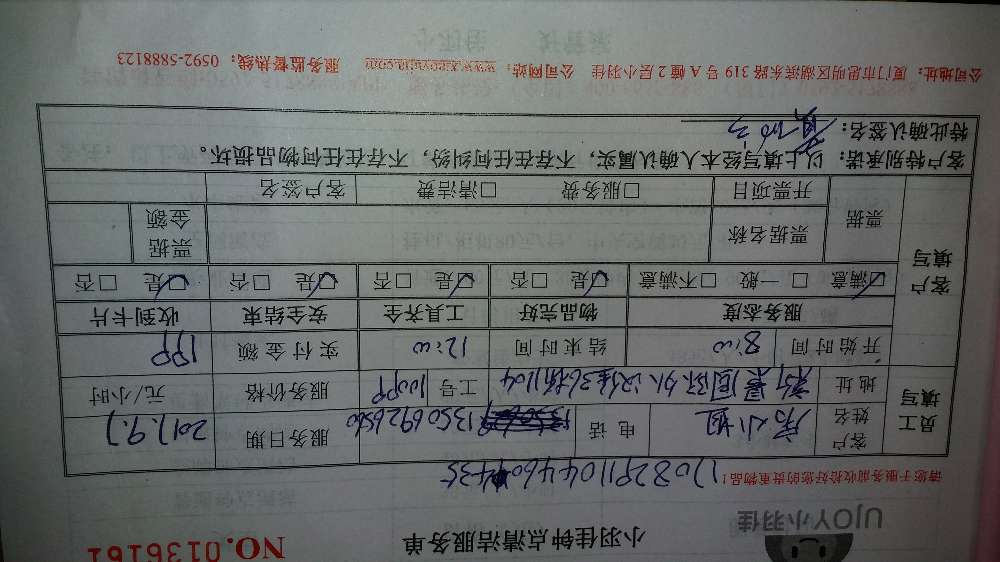 UJOY小羽佳
小羽佳钟点清洁服务单
NO.0136161
请您于服务前收拾好您的贵重物品!
员工填写
客户姓名
电话
13506926560
服务日期
2017.9.7
地址
工号
服务价格
元/小时
开始时间 8:00 结束时间 12:00 实付金额
客户填写
服务态度 物品完好 工具齐全 安全结束 收到卡片
☑满意 □一般 □不满意 ☑是 □否 ☑是 □否 ☑是 □否 ☑是 □否
票据
票据名称
票据金额
开票项目 □服务费 □清洁费 客户签名
客户特别承诺:以上填写经本人确认属实,不存在任何纠纷,不存在任何物品损坏。
特此确认签名:
公司地址:厦门市思明区湖滨东路 319 号 A 幢 2 层小羽佳 公司网站:www.xiaoyujia.com 服务监督热线:0592-5888123